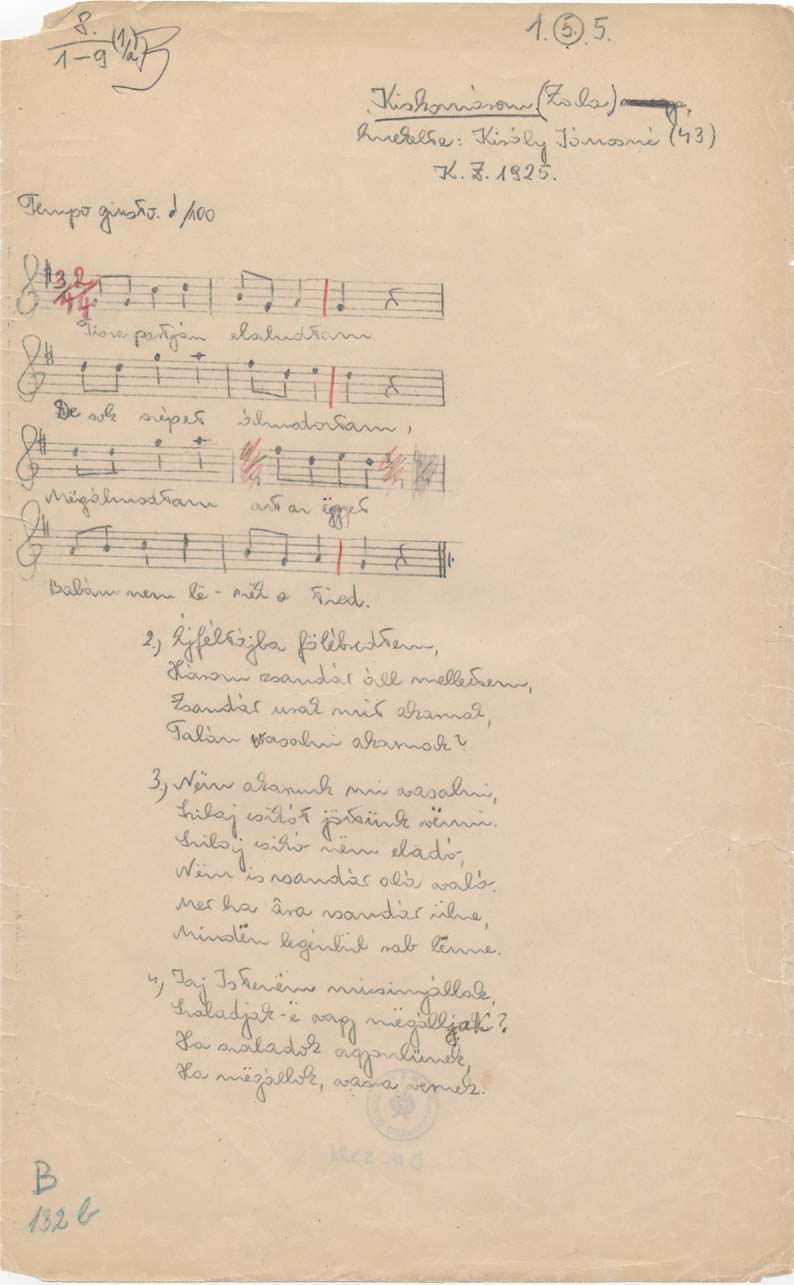 8.
1-9 (1/a) B
1. 5. 5.
Kiskomárom (Zala)
Énekelte: Király Jánosné (43)
K. Z. 1925.
Tempo giusto. /100
3 2
4 4
Tisza partján elaludtam
De sok szépet álmodottam,
Mëgálmottam azt az ëggyet
Babám nem lë-szëk a tied.
2.) Éjféltájba fölébredtem,
Három zsandár áll mellettem,
Zsandár urak mit akarnak,
Talán vasalni akarnak?
3.) Nëm akarunk mi vasalni,
Szilaj csikót jöttünk vënni.
Szilaj csikó nëm eladó,
Nëm is zsandár alá való.
Mer ha ára zsandár ülne,
Mindën legénbül rab lënne.
4.) Jaj Istenëm micsinyállak,
Szaladjak-ë vagy mëgálljak?
Ha szaladok agyonlünek,
Ha mëgállok, vasra vernek.
B
132 b